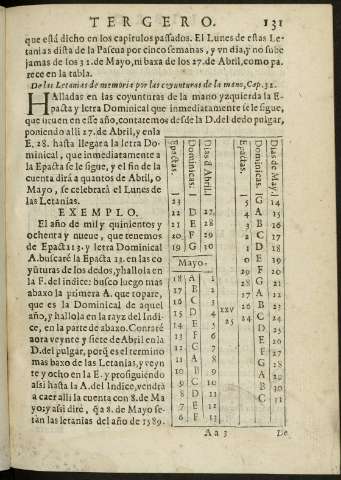 TERCERO. 131
que está dicho en los capitulos passados. El Lunes de estas Le-
tanias dista de la Pascua por cinco semanas, y vn dia, y no sube
jamas de los 31. de Mayo, ni baxa de los 27. de Abril, como pa-
rece en la tabla.
De las Letanias de memoria por las coyunturas de la mano, Cap. 32.
HAlladas en las coyunturas de la mano yzquierda la E-
pacta y letra Dominical que inmediatamente se le sigue,
que siruen en esse año, contaremos desde la D. del dedo pulgar,
poniendo alli 27. de Abril, y en la
E. 28. hasta llegar a la letra Do-
minical, que inmediatamente a
la Epacta se le sigue, y el fin de la
cuenta dirá a quantos de Abril, o
Mayo, se celebrará el Lunes de
las Letanias.
EXEMPLO.
El año de mil y quinientos y
ochenta y nueue, que tenemos
de Epacta 13. y letra Dominical
A. buscaré la Epacta 13. en las co
yũturas de los dedos, y hallola en
la F. del indice: busco luego mas
abaxo la primera A. que topare,
que es la Dominical de aquel
año, y hallola en la rayz del Indi
ce, en la parte de abaxo. Contaré
aora veynte y siete de Abril en la
D. del pulgar, porq̃ es el termino
mas baxo de las Letanias, y veyn
te y ocho en la E. y prosiguiẽdo
assi hasta la A. del Indice, vendrá
a caer alli la cuenta con 8. de Ma
yo; y assi diré, q̃ a 8. de Mayo se-
rán las letanias del año de 1589.
Epactas. Dominicas. Dias d'Abril.
23
22 D 27
21 E 28
20 F 29
19 G 30
Mayo.
18 A 1
17 B 2
16 C 3
15 D 4
14 E 5
13 F 6
12 G 7
11 A 8
10 B 9
9 C 10
8 D 11
7 E 12
6 F 13
Epactas. Dominicas. Dias de Mayo
5 G 14
4 A 15
3 B 16
2 C 17
1 D 18
0 E 19
29 F 20
28 G 21
27 A 22
26 B 23
XXV 25 C 24
24 D 25
E 26
F 27
G 28
A 29
B 30
C 31
Aa 3 De